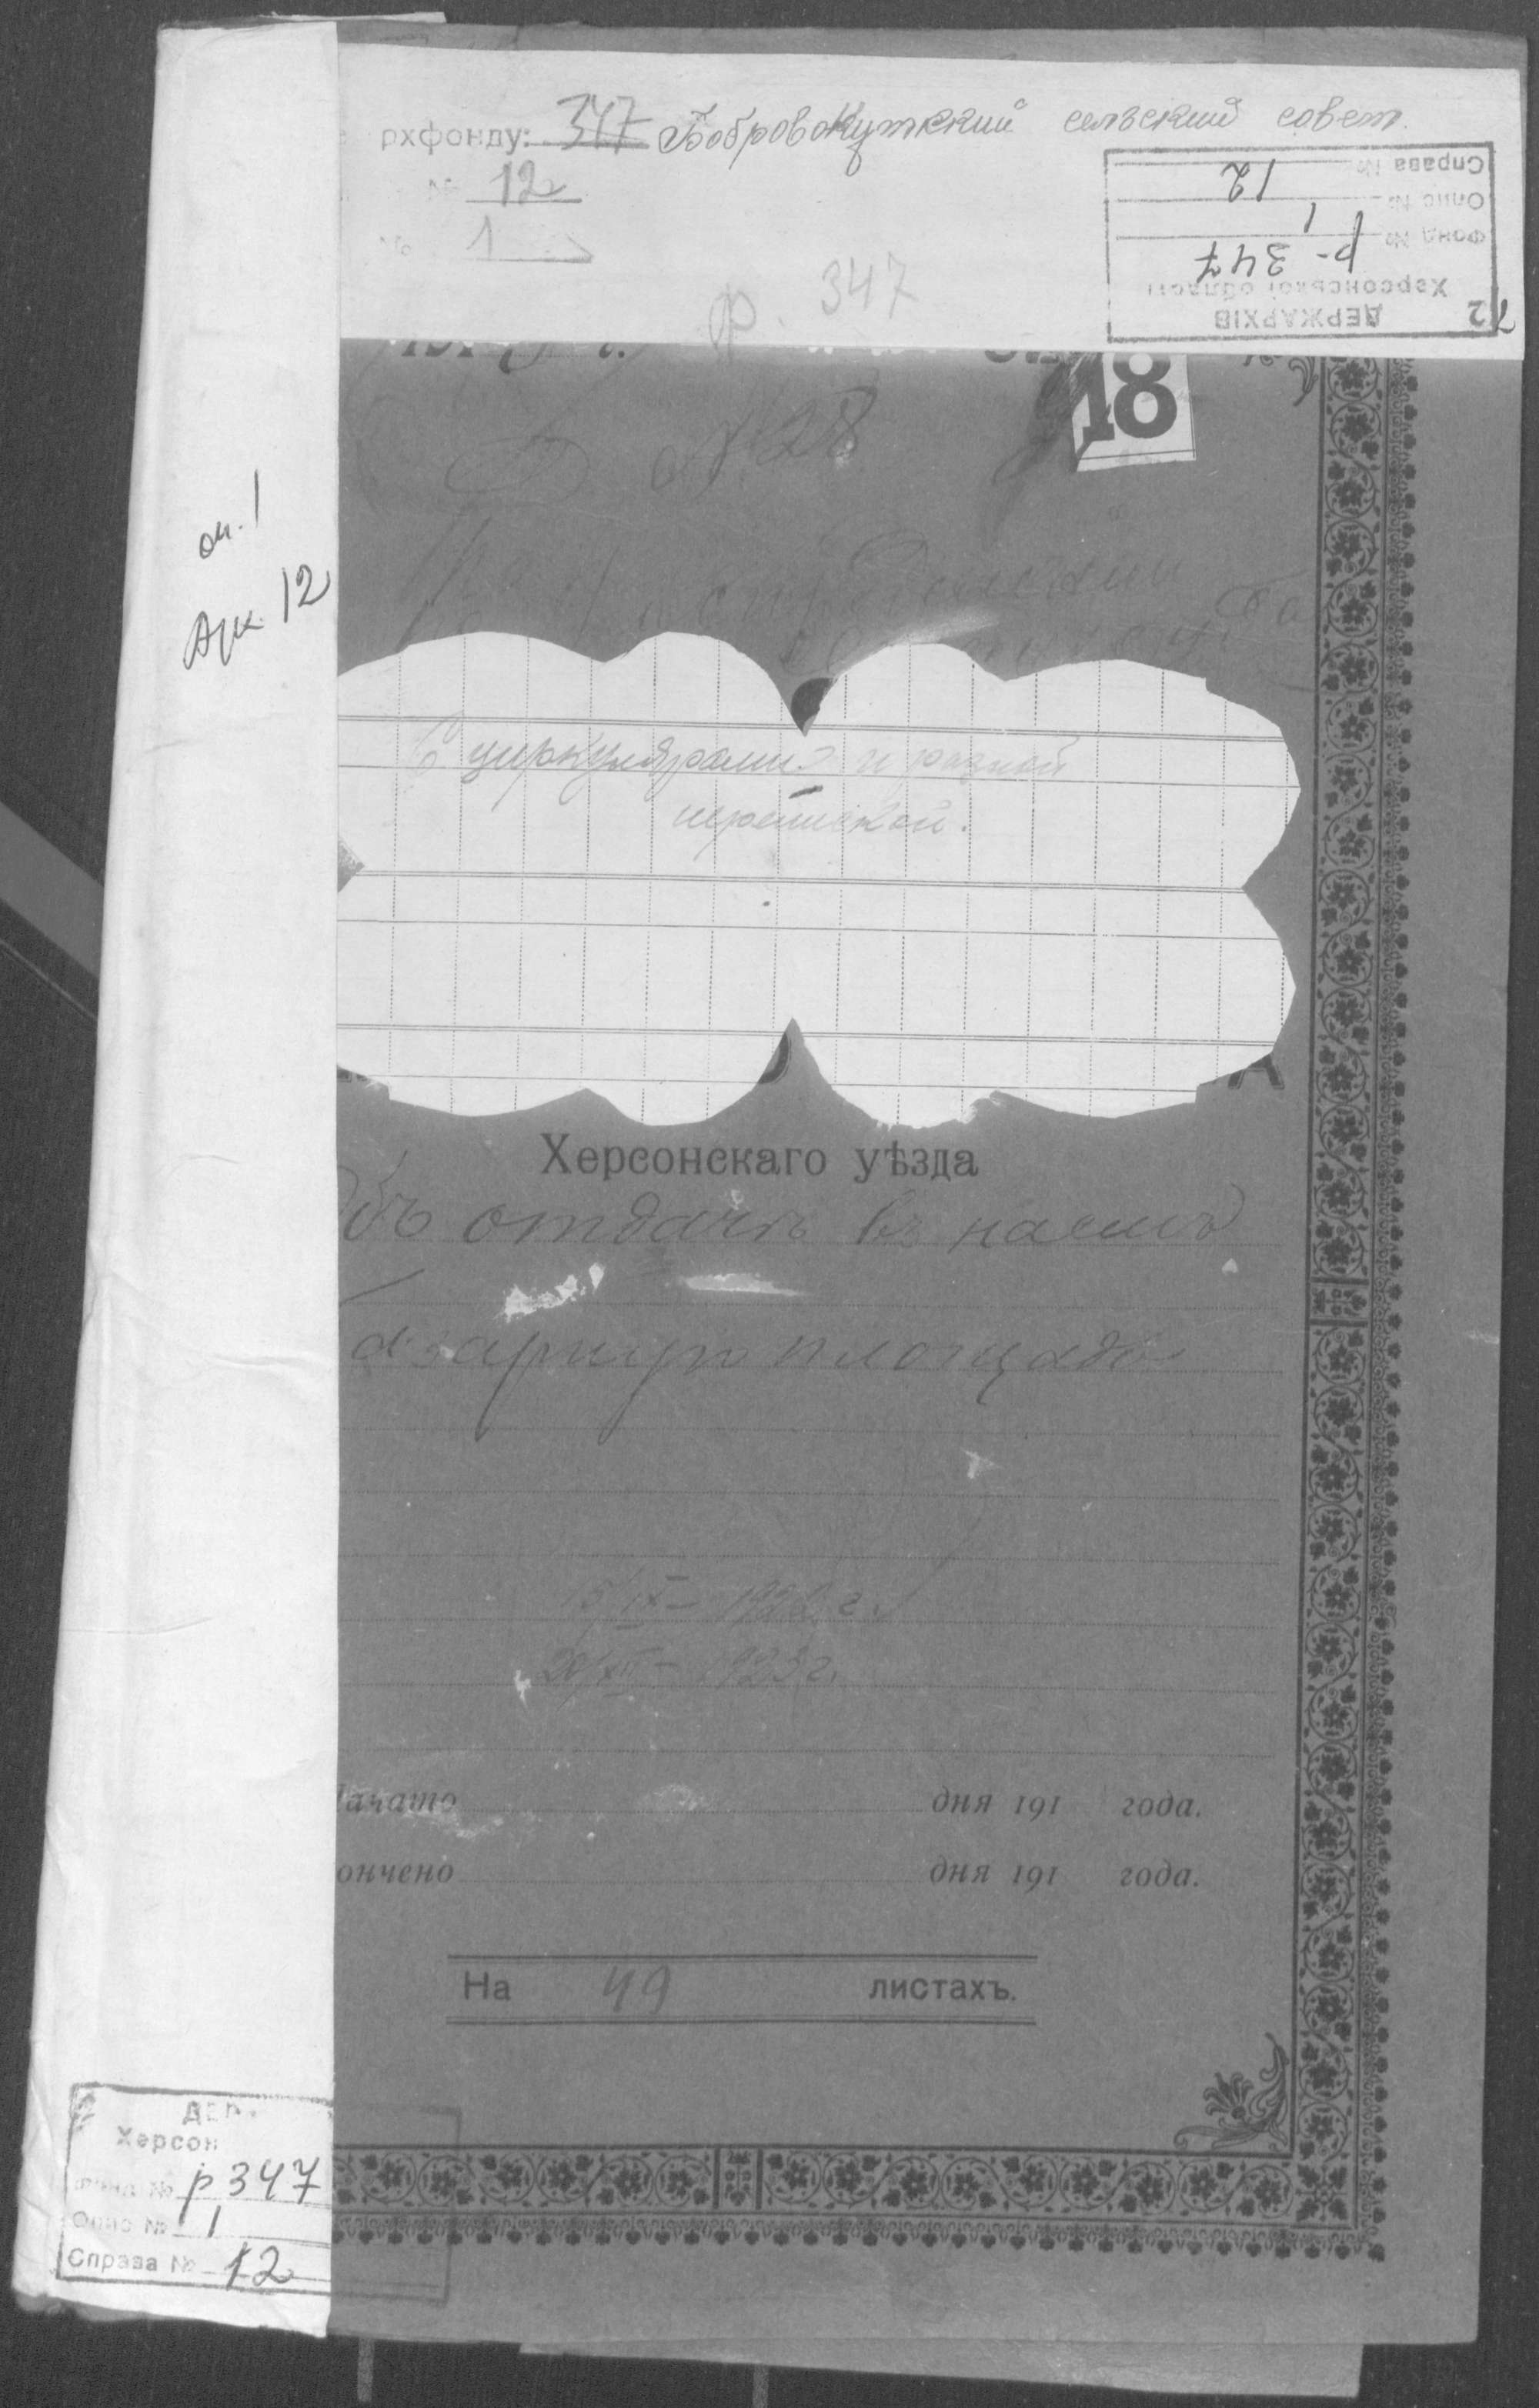 рхфонду: 347 Бобровокутский сельский совет.
№ 12
№ 1
ф. 347
ДЕРЖАРХІВ
Херсонської області
Фонд № р-347
Опис № 1
Справа № 12
18
№ 28
оп. 1
Арк. 12
С циркулярами и разной
перепиской.
Херсонскаго уѣзда
Объ отдачѣ въ наемъ
базарную площадь
15/IX – 1922 г.
20/XII – 1923 г.
Начато дня 191 года.
ончено дня 191 года.
На 49 листахъ.
ДЕР
Херсон
Фонд № р347
Опис № 1
Справа № 12